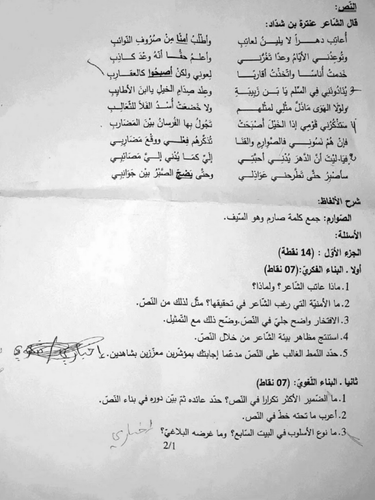 النّص:
قال الشّاعر عنترة بن شدّاد:
أعاتِب دهـراً لا يلينُ لعاتِبِ وأطلُبُ أمنًا مِنْ صُروفِ النّوائبِ
وتُوعِدُني الأيّامُ وعدًا تَغُرُّني وأعلمُ حقًّا أنّهُ وعْدُ كـاذبِ
خدمتُ أُناسًا واتّخذتُ أقاربًا لعوني ولكنْ أصبحُوا كالعقـاربِ
يُنادُونني في السّلمِ يا بْنَ زبيبةٍ وعندَ صِدَامِ الخيلِ يا ابنَ الأطايبِ
ولولا الهَوَى ماذلَّ مثلي لمثلهم ولا خَضعتْ أُسدُ الفَلاَ للثّعالبِ
ستذكُرُني قومِي إذا الخيْلُ أصبحتْ تَجُولُ بها الفُرسانُ بينَ المضاربِ
فإنْ همْ نَسُوني فالصّوارمُ والقنَا تُذكّرهُم فِعلِي ووقْعَ مضَارِبِي
فيَا ليْتَ أنّ الدّهرَ يُدنِي أحبّتِي إليَّ كمَا يُدْني إليَّ مصَائبِي
سأصبِرُ حتّى تطّرحني عَواذلِي وحتّى يَضِجَّ الصّبْرُ بينَ جَوانِبِي
شرح الألفاظ:
الصوارم: جمع كلمة صارم وهو السّيف.
الأسئلة:
الجزء الأوّل : (14 نقطة)
أولا . البناء الفكري:(07 نقاط)
1. ماذا عاتب الشّاعر؟ ولماذا؟
2. ما الأمنيّة التي رغب الشّاعر في تحقيقها؟ مثّل لذلك من النّصّ.
3. الافتخار واضح جليّ في النّصّ.وضّح ذلك مع التّمثيل.
4. استنتج مظاهر بيئة الشّاعر من خلال النّصّ.
5. حدّد النّمط الغالب على النّصّ مدعّما إجابتك بمؤشّرين معزّزين بشاهدين.
ثانيا . البناء اللّغويّ: (07 نقاط)
1. ما الضّمير الأكثر تكرارا في النّصّ؟ حدّد عائده ثمّ بيّن دوره في بناء النّصّ.
2. أعرب ما تحته خطّ في النّصّ.
3. ما نوع الأسلوب في البيت السّابع؟ وما غرضه البلاغيّ؟
2/1